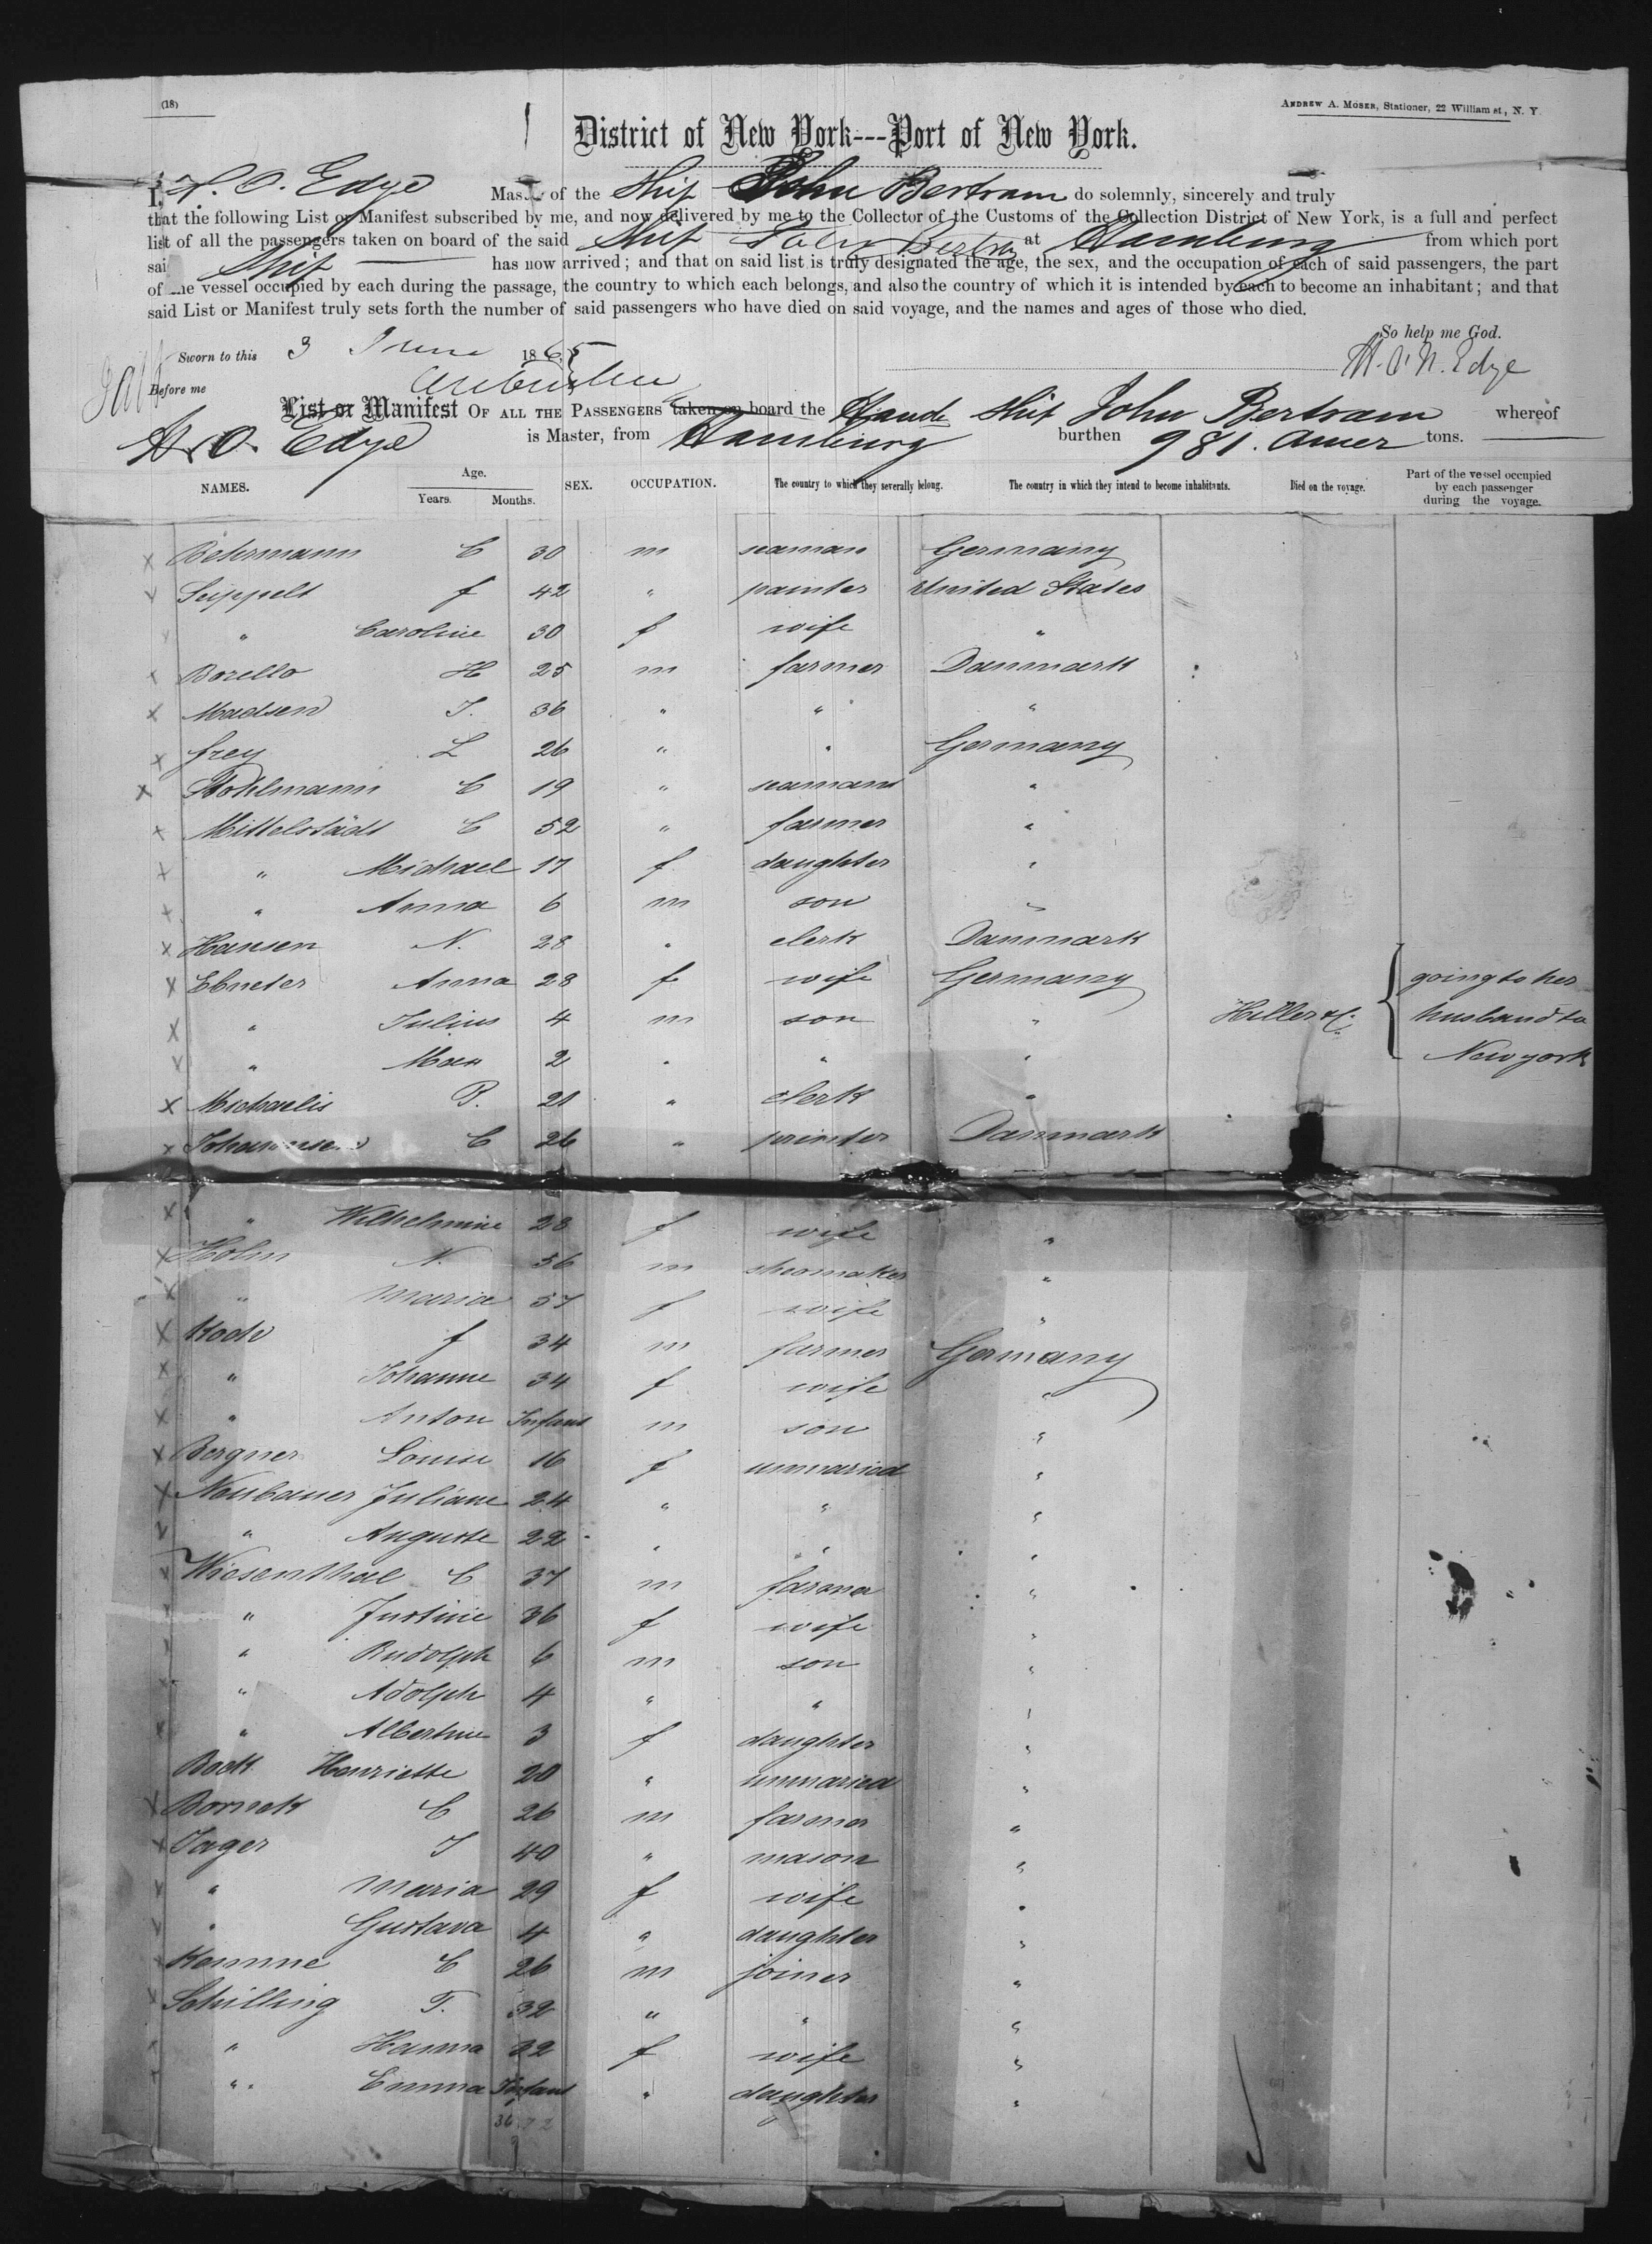 (18)
ANDREW A. MOSER, Stationer, 22 William st, N. Y.
District of New York---Port of New York.
I, H. O. Edye Mas of the Ship John Bertram do solemnly, sincerely and truly
that the following List or Manifest subscribed by me, and now delivered by me to the Collector of the Customs of the Collection District of New York, is a full and perfect
list of all the passengers taken on board of the said Ship John Bertram at Hamburg from which port
sai Ship has now arrived; and that on said list is truly designated the age, the sex, and the occupation of each of said passengers, the part
of the vessel occupied by each during the passage, the country to which each belongs, and also the country of which it is intended by each to become an inhabitant; and that
said List or Manifest truly sets forth the number of said passengers who have died on said voyage, and the names and ages of those who died.
So help me God.
Sworn to this 3 June 1865
Edye
Before me
List or Manifest OF ALL THE PASSENGERS taken on board the Hamb Ship John Bertram whereof
H. O. Edye is Master, from Hamburg burthen 981. Amer tons.
NAMES. Age. Years. Months. SEX. OCCUPATION. The country to which they severally belong. The country in which they intend to become inhabitants. Died on the voyage. Part of the vessel occupied by each passenger during the voyage.
x Behrmann C 30 m seaman Germany
Seippelt f 42 " painter United States
" Caroline 30 f wife "
x Borello H 25 m farmer Danmark
x Madsen J. 36 " " "
x frey L 26 " " Germany
x Pohlmann C 19 " seaman "
x Mittelstädt C 52 " farmer "
x " Michael 17 f daughter "
x " Anna 6 m son "
x Hansen N. 28 " clerk Danmark
x Ebneter Anna 28 f wife Germany going to her
x " Julius 4 m son " Hiller & C. husband to
" Max 2 " " " New york
x Michaelis P. 21 " clerk "
x Johannsen C 26 " printer Danmark
x " Wilhelmine 28 f wife "
x Holm N. 56 m shomaker "
x " Maria 57 f wife "
x Koch f 34 m farmer Germany
x " Johanne 34 f wife "
x " Anton Infant m son "
x Bergner Louise 16 f unmaried "
x Neubauer Juliane 24 " " "
" Auguste 22 " " "
Wiesenthal C 37 m farmer "
" Justine 36 f wife "
" Rudolph 6 m son "
" Adolph 4 " " "
x " Albertine 3 f daughter "
Bock Henriette 20 " unmaried "
Bornek C 26 m farmer "
x Jager J 40 " mason "
" Maria 29 f wife "
" Gustava 4 " daughter "
Kamme C 26 m joiner "
Schilling T. 32 " " "
" Hanna 22 f wife "
" Emma Infant " daughter "